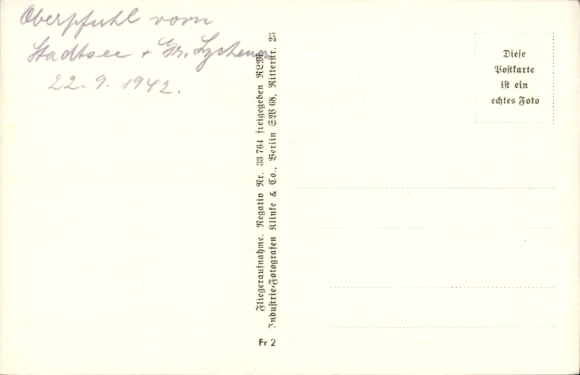 Oberpfuhl vorn
Stadtsee + Gr. Lychensee
22.9.1942.
Fliegeraufnahme. Negativ Nr. 33764 freigegeben RLM.
Industrie-Fotografen Klinke & Co., Berlin SW 68, Ritterstr. 23
Fr 2
Diese
Postkarte
ist ein
echtes Foto